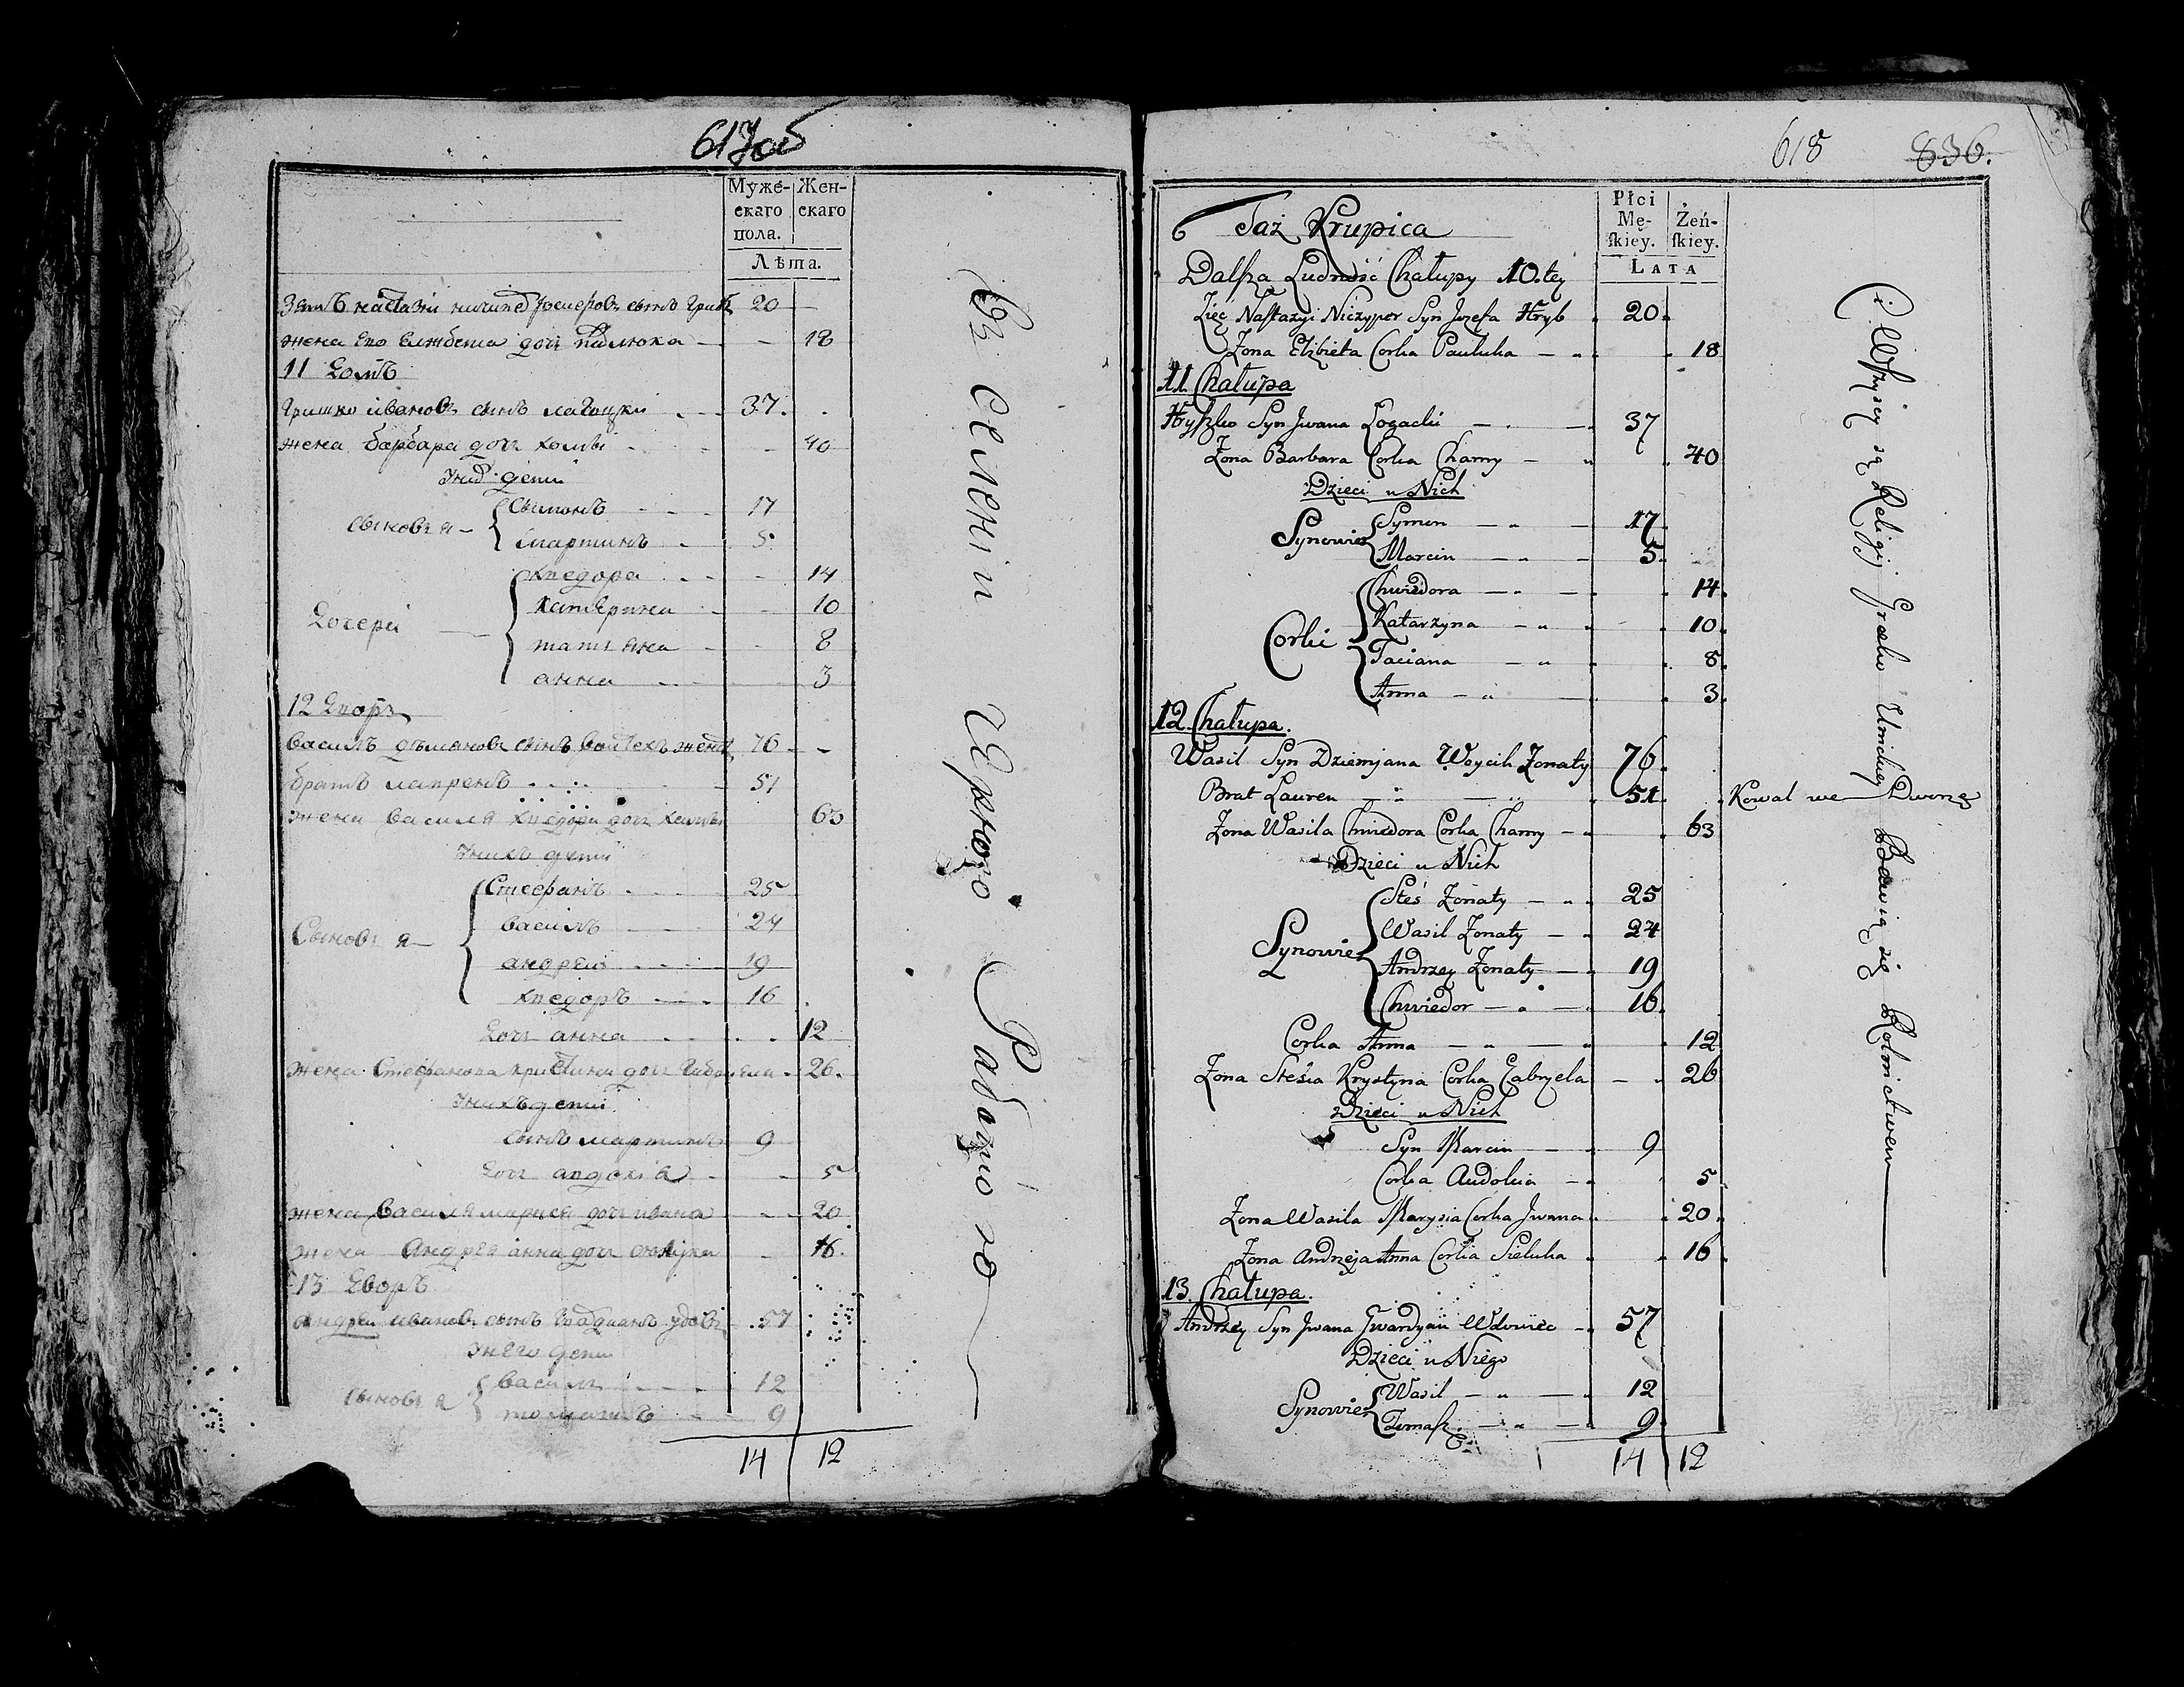 617об
Муже- Жен-
скаго скаго
пола.
Лѣта.
зять настази ничипоръ Іосифовъ сынъ Грибъ 20 —
жена его елжбета дочь павлюка — — 18
11 Домъ
Гришко ивановъ сынъ лагоцки 37.
жена барбара дочь хомы 40
дети
сыновья Сымонъ 17
мартинъ 5
хведора 14
Дочери катерина 10
татьяна 8
анна 3
12 Дворъ
василь демьяновъ сынъ войтехъ женатъ 76
братъ лавренъ 51
жена василя хведора дочь хомы 63
у нихъ дети
Стефанъ 25
василь 24
Сыновья андрей 19
хведоръ 16
Дочь анна 12
жена Стефанова кристина дочь Габриела 26.
у нихъ дети
сынъ мартинъ 9
Дочь авдокіа 5
жена василя марыся дочь ивана 20
жена андрея анна дочь 16.
13 Дворъ
андрей ивановъ сынъ гвардианъ удовец 57
у него дети
сыновья василь 12
томашъ 9
14 12
618 836.
6 Taż Krupica
Płci
Mę- Żeń-
skiey. skiey.
LATA
Dalsza Ludność Chałupy 10.tej
Zięć Nastazyi Niczypor Syn Jozefa Hryb 20
Żona Elżbieta Corka Pauluka — 18
11. Chałupa
Hryszko Syn Jwana Łogacki — 37
Żona Barbara Corka Chamy — 40
Dzieci u Nich
Symon — 17
Synowie
Marcin — 5
Chwiedora — 14
Katarzyna — 10
Corki
Taciana — 8
Anna — 3
12. Chałupa.
Wasil Syn Dziemjana Woycih Żonaty 76
Brat Lauren — 51 Kowal we Dworze
Żona Wasila Chwiedora Corka Chamy — 63
Dzieci u Nich
Steś Żonaty — 25
Wasil Żonaty — 24
Synowie
Andrzey Żonaty — 19
Chwiedor — 16
Corka Anna — 12
Żona Steśia Krystyna Corka Gabryela — 26
Dzieci u Nich
Syn Marcin — 9
Corka Audokia — 5
Żona Wasila Marysia Corka Jwana 20
Żona Andrzeja Anna Corka Sieluka 16
13. Chałupa.
Andrzey Syn Jwana Gwardyan Wdowiec — 57
Dzieci u Niego
Wasil — 12
Synowie
Tomasz — 9
14 12
i Wszyscy są Religij Græko Unickiey Bawią się Rolnictwem